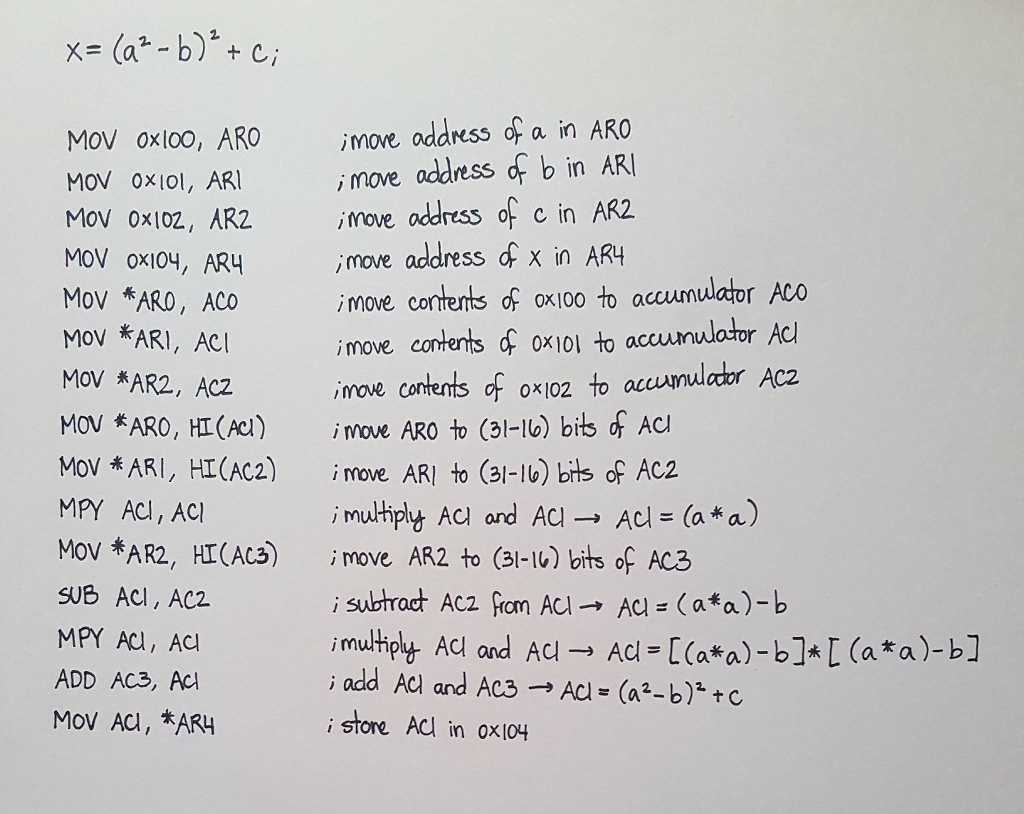 x = (a² - b)² + c;
MOV 0x100, AR0 ;move address of a in AR0
MOV 0x101, AR1 ;move address of b in AR1
MOV 0x102, AR2 ;move address of c in AR2
MOV 0x104, AR4 ;move address of x in AR4
MOV *AR0, AC0 ;move contents of 0x100 to accumulator AC0
MOV *AR1, AC1 ;move contents of 0x101 to accumulator AC1
MOV *AR2, AC2 ;move contents of 0x102 to accumulator AC2
MOV *AR0, HI(AC1) ;move AR0 to (31-16) bits of AC1
MOV *AR1, HI(AC2) ;move AR1 to (31-16) bits of AC2
MPY AC1, AC1 ;multiply AC1 and AC1 → AC1 = (a*a)
MOV *AR2, HI(AC3) ;move AR2 to (31-16) bits of AC3
SUB AC1, AC2 ;subtract AC2 from AC1 → AC1 = (a*a)-b
MPY AC1, AC1 ;multiply AC1 and AC1 → AC1 = [(a*a)-b]*[(a*a)-b]
ADD AC3, AC1 ;add AC1 and AC3 → AC1 = (a²-b)²+c
MOV AC1, *AR4 ;store AC1 in 0x104